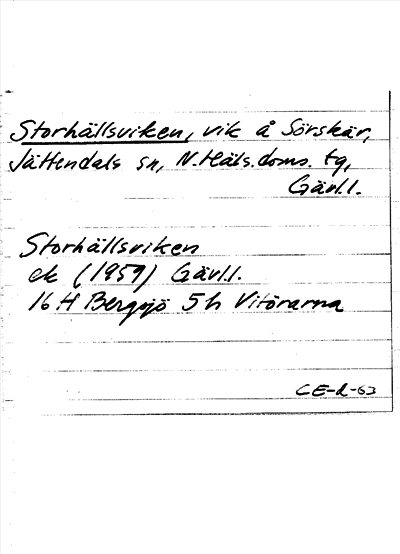 Storhällsviken, vik å Sörskär,
Jättendals sn, N.Häls.doms. tg,
Gävl.l.
Storhällsviken
ek (1959) Gävl.l.
16 H Bergsjö 5h Vitörarna
CE-L-63